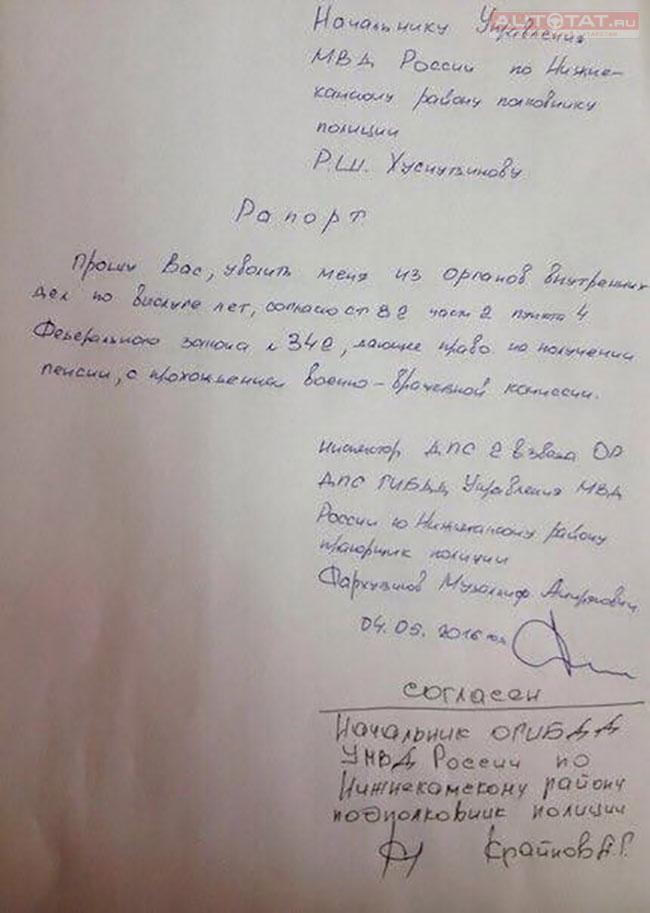 AUTOTAT.RU
Начальнику Управления
МВД России по Нижне-
камскому району полковнику
полиции
Р.Ш. Хуснутдинову
Рапорт
Прошу Вас, уволить меня из органов внутренних
дел по выслуге лет, согласно ст 82 части 2 пункта 4
Федерального закона № 342, дающие право на получении
пенсии, с прохождением военно-врачебной комиссии.
Инспектор ДПС 2 взвода ОР
ДПС ГИБДД Управления МВД
России по Нижнекамскому району
прапорщик полиции
04.05.2016
согласен
Начальник ОГИБДД
УМВД России по
Нижнекамскому району
подполковник полиции
Крайнов А.Г.